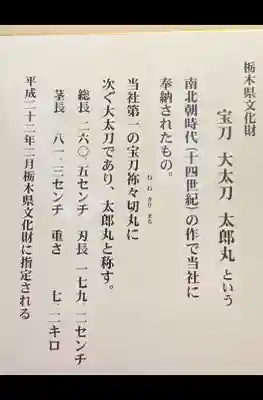 栃木県文化財
宝刀 大太刀 太郎丸 という
南北朝時代(十四世紀)の作で当社に
奉納されたもの。
当社第一の宝刀祢々切丸に
ねねきりまる
次ぐ大太刀であり、太郎丸と称す。
総長 二六〇・五センチ 刃長 一七九・二センチ
茎長 八一・三センチ 重さ 七・二キロ
平成二十二年二月栃木県文化財に指定される